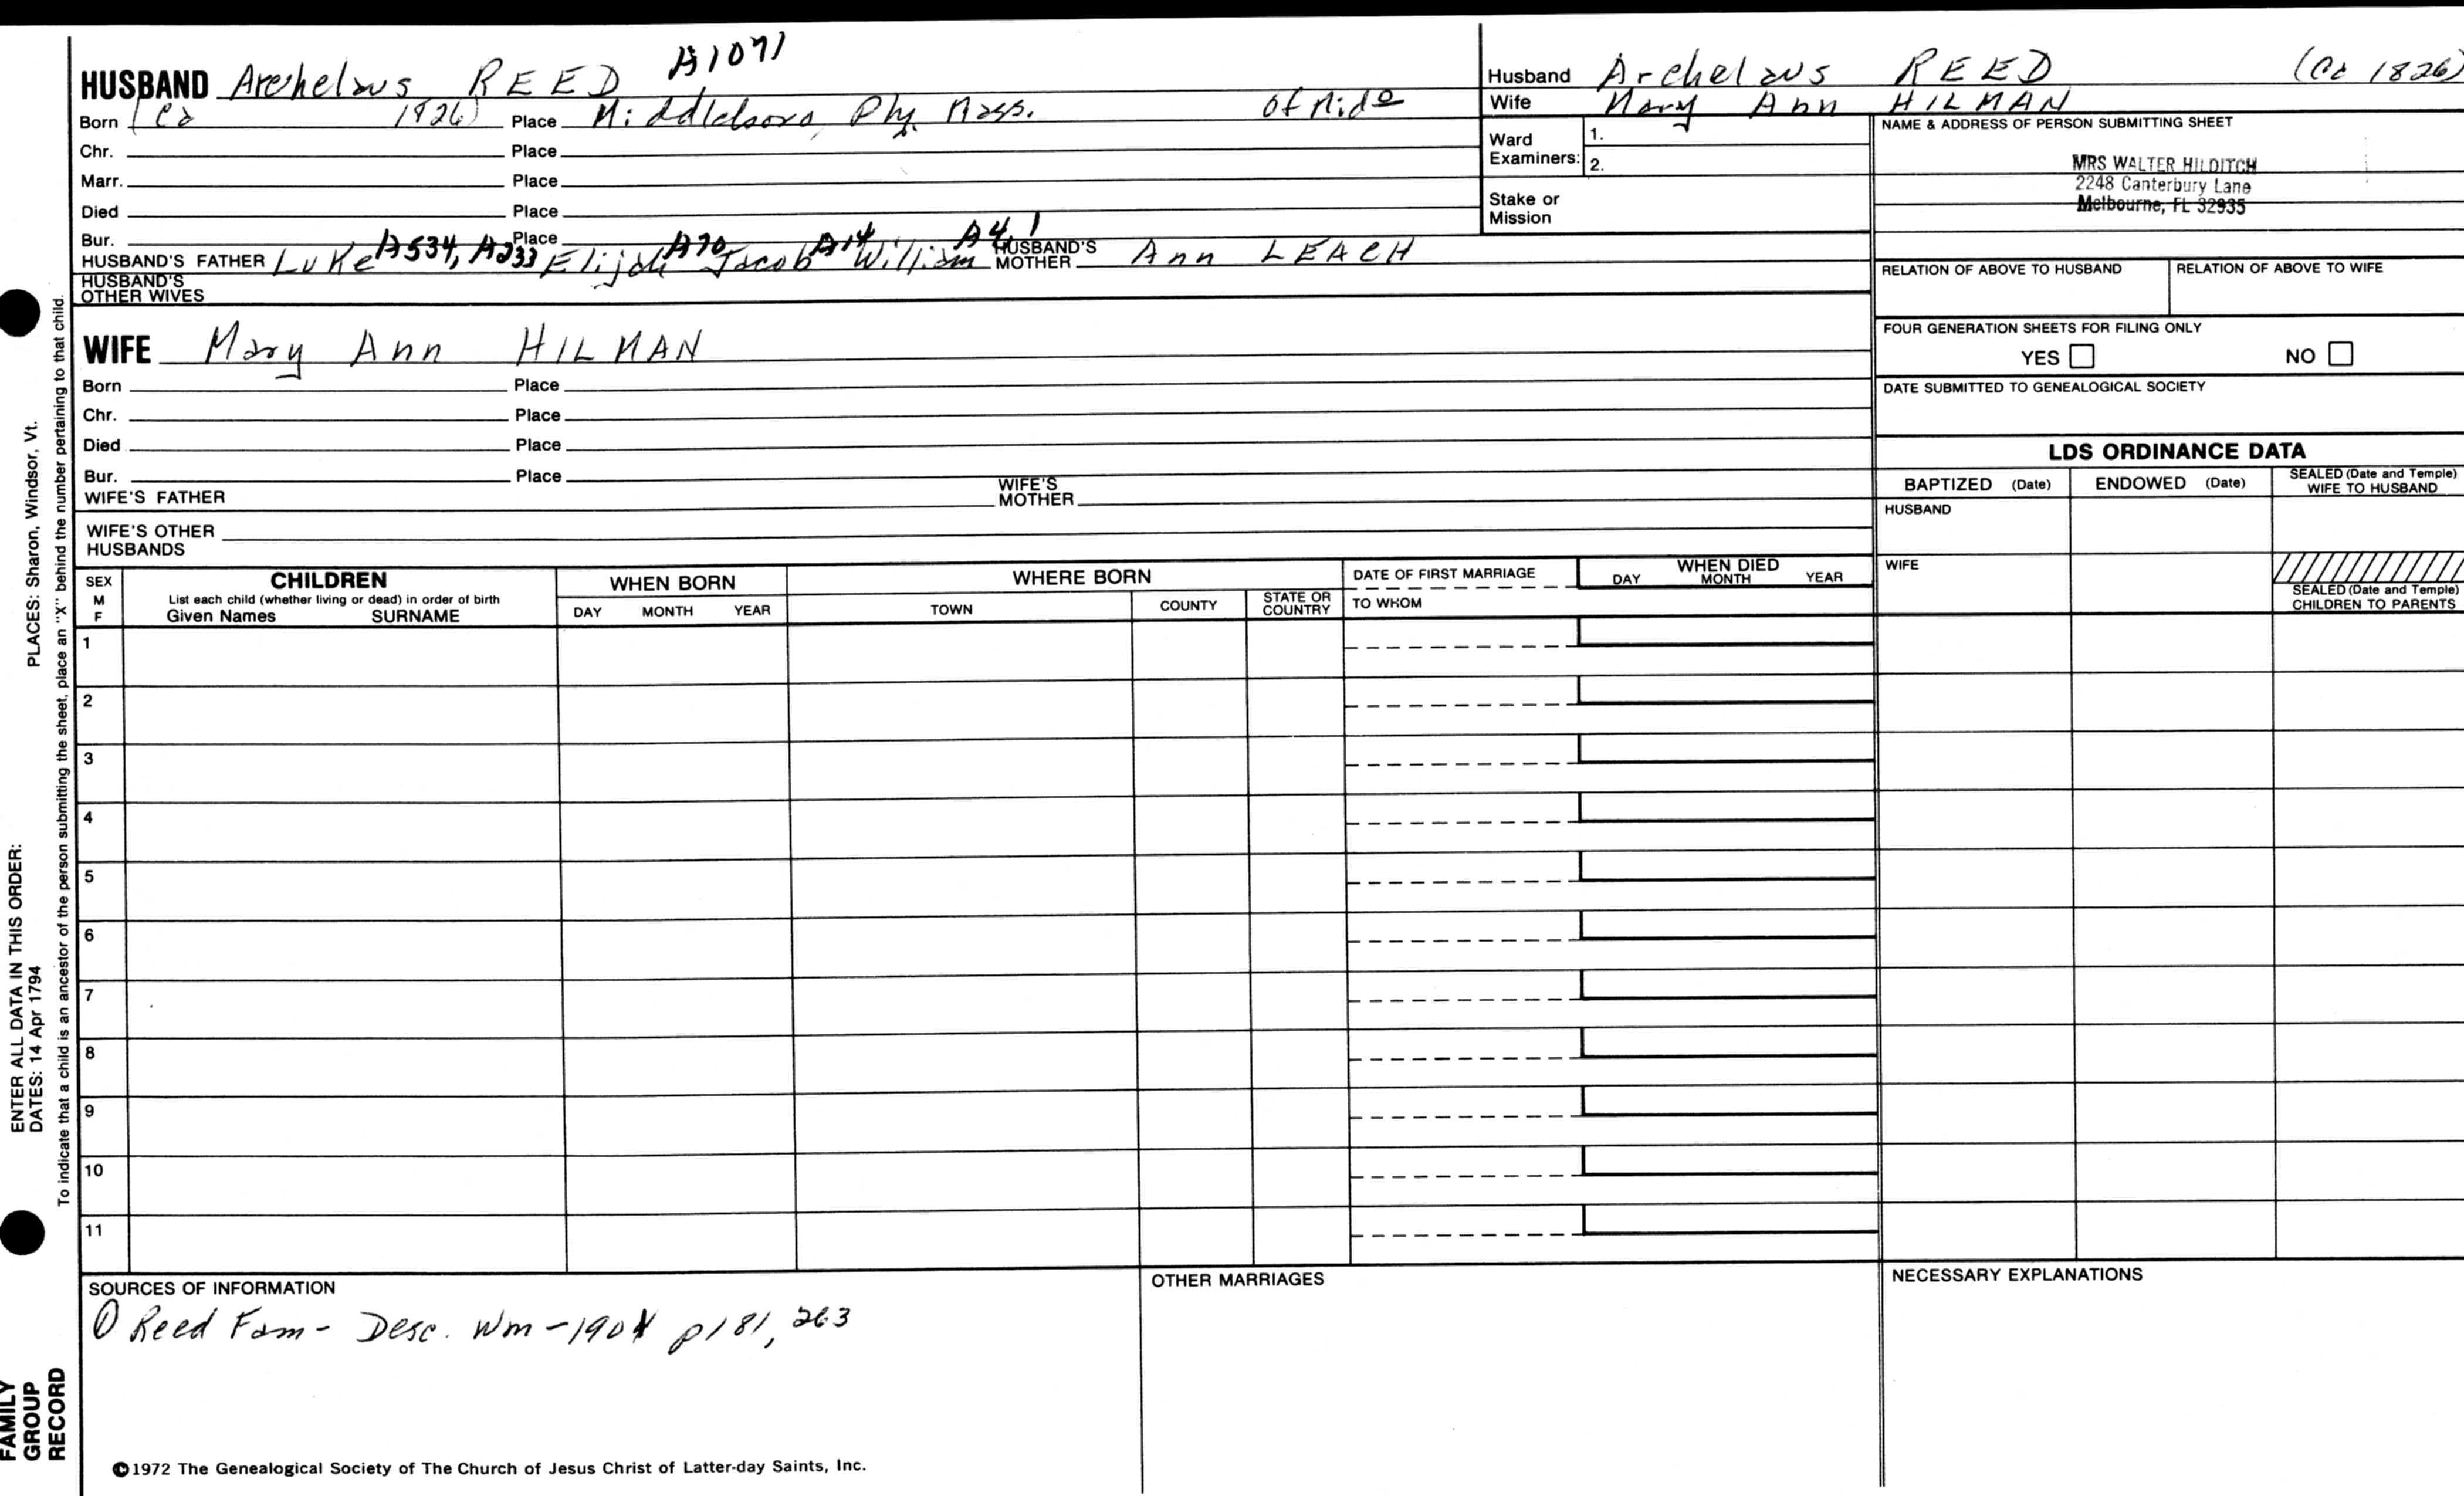 HUSBAND Archelaus REED A1071
Born (Ca 1826) Place Middleboro, Ply. Mass. Of Mido
Chr. Place
Marr. Place
Died Place
Bur. Place
HUSBAND'S FATHER Luke A534, A233 Elijah A70 Jacob A14 William A4, 1 HUSBAND'S MOTHER Ann LEACH
HUSBAND'S OTHER WIVES
WIFE Mary Ann HILMAN
Born Place
Chr. Place
Died Place
Bur. Place
WIFE'S FATHER WIFE'S MOTHER
WIFE'S OTHER HUSBANDS
Husband Archelaus REED (Ca 1826)
Wife Mary Ann HILMAN
Ward Examiners: 1.
2.
Stake or Mission
NAME & ADDRESS OF PERSON SUBMITTING SHEET
MRS WALTER HILDITCH
2248 Canterbury Lane
Melbourne, FL 32935
RELATION OF ABOVE TO HUSBAND RELATION OF ABOVE TO WIFE
FOUR GENERATION SHEETS FOR FILING ONLY
YES NO
DATE SUBMITTED TO GENEALOGICAL SOCIETY
LDS ORDINANCE DATA
BAPTIZED (Date) ENDOWED (Date) SEALED (Date and Temple) WIFE TO HUSBAND
HUSBAND
WIFE
SEALED (Date and Temple) CHILDREN TO PARENTS
SEX M F
CHILDREN
List each child (whether living or dead) in order of birth
Given Names SURNAME
WHEN BORN
DAY MONTH YEAR
WHERE BORN
TOWN COUNTY STATE OR COUNTRY
DATE OF FIRST MARRIAGE
TO WHOM
WHEN DIED
DAY MONTH YEAR
1
2
3
4
5
6
7
8
9
10
11
SOURCES OF INFORMATION
① Reed Fam - Desc. Wm - 1901 p181, 263
OTHER MARRIAGES
NECESSARY EXPLANATIONS
©1972 The Genealogical Society of The Church of Jesus Christ of Latter-day Saints, Inc.
FAMILY GROUP RECORD
ENTER ALL DATA IN THIS ORDER:
DATES: 14 Apr 1794 PLACES: Sharon, Windsor, Vt.
To indicate that a child is an ancestor of the person submitting the sheet, place an "X" behind the number pertaining to that child.